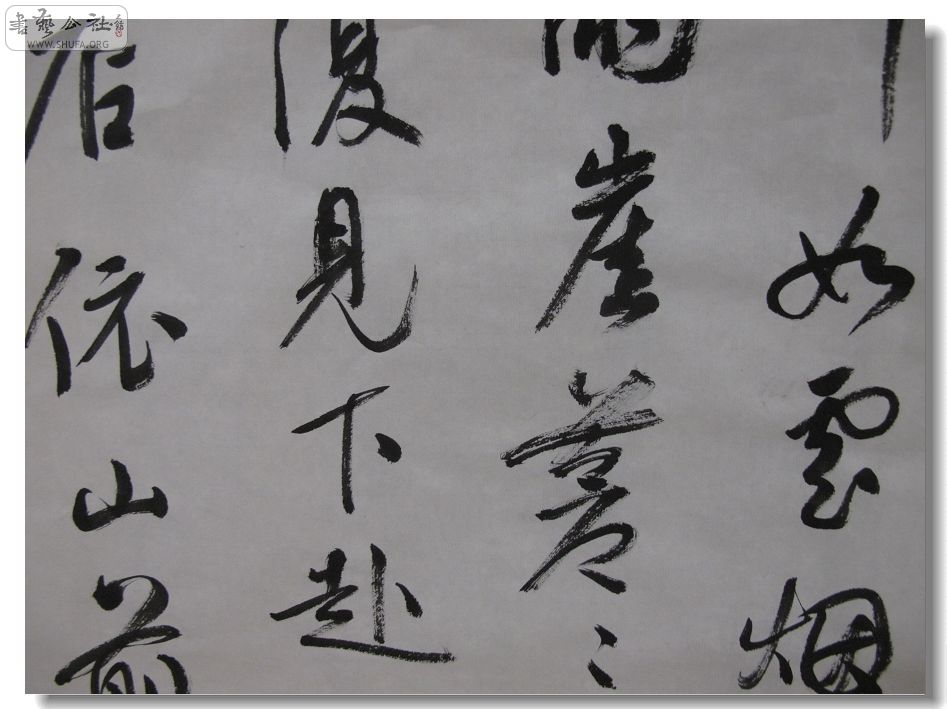 書藝公社
WWW.SHUFA.ORG
如雲烟
兩崖蒼〻
復見下赴
店依山前